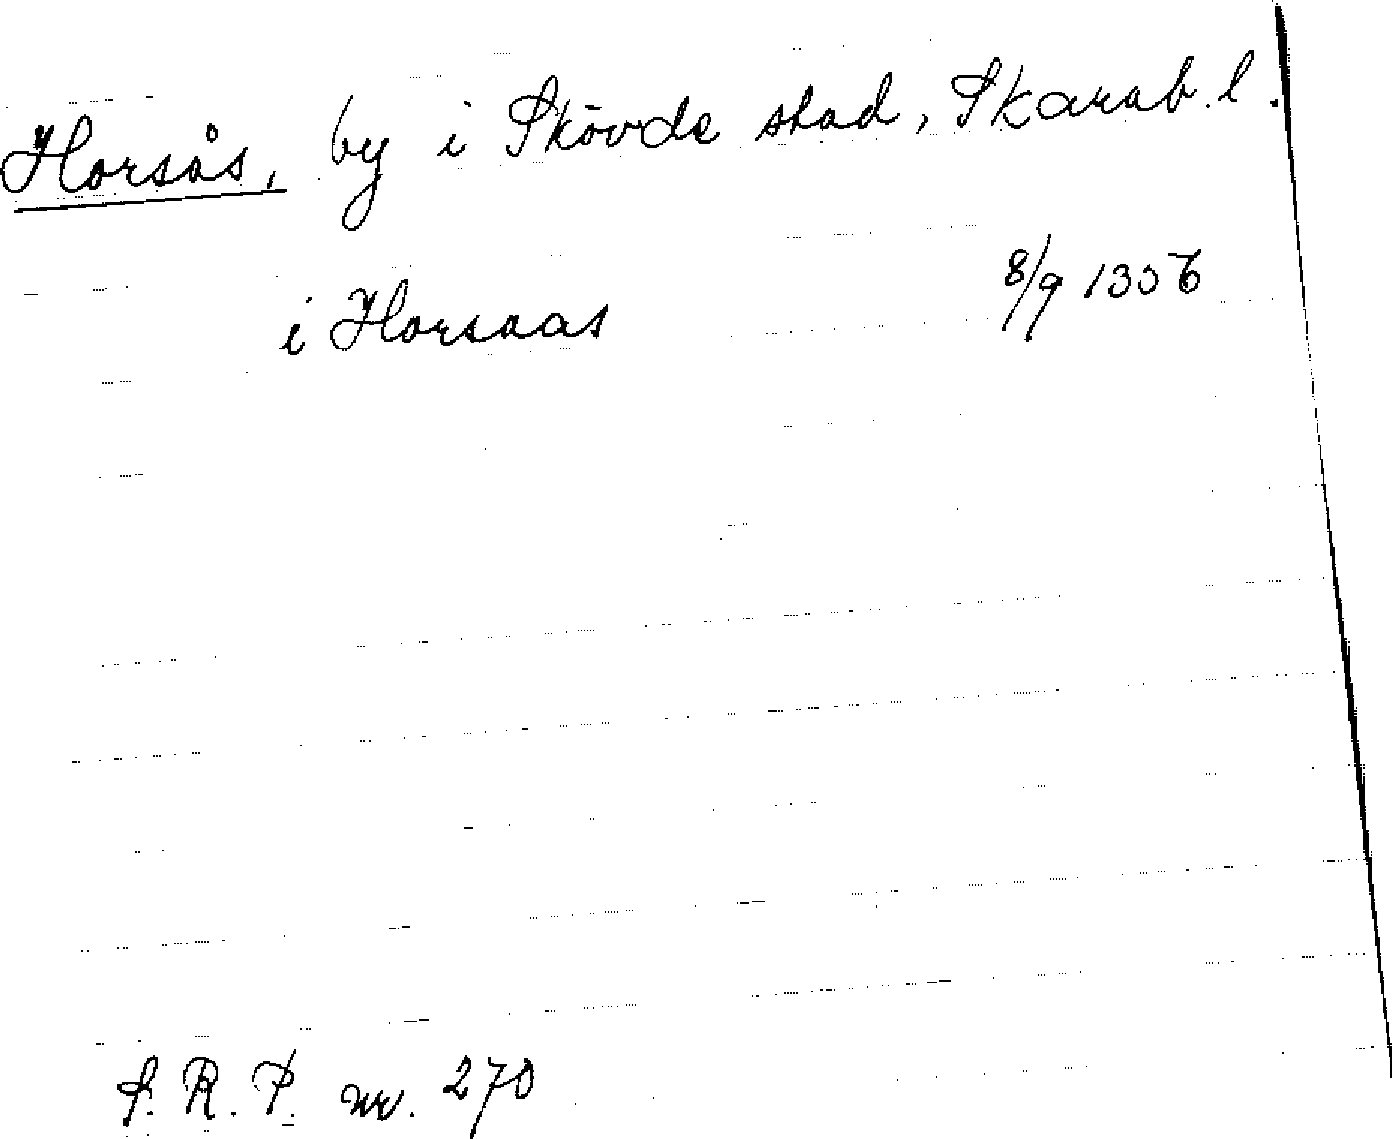 Horsås, by i Skövde stad, Skarab. l.
i Horsaas 8/9 1356
S. R. P. nr. 270